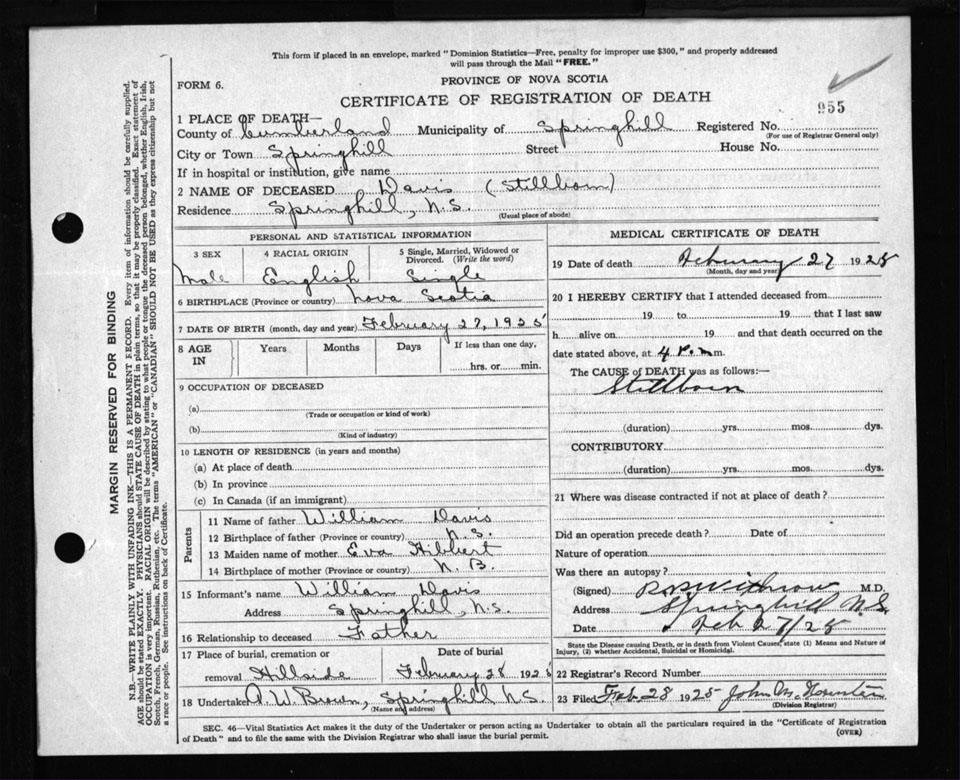 This form if placed in an envelope, marked "Dominion Statistics—Free, penalty for improper use $300," and properly addressed
will pass through the Mail "FREE."
FORM 6.
PROVINCE OF NOVA SCOTIA
CERTIFICATE OF REGISTRATION OF DEATH
955
1 PLACE OF DEATH—
County of Cumberland Municipality of Springhill Registered No.
(For use of Registrar General only)
City or Town Springhill Street House No.
If in hospital or institution, give name
2 NAME OF DECEASED Davis (Stillborn)
Residence Springhill, N.S.
(Usual place of abode)
PERSONAL AND STATISTICAL INFORMATION
3 SEX 4 RACIAL ORIGIN 5 Single, Married, Widowed or Divorced. (Write the word)
Male English Single
6 BIRTHPLACE (Province or country) Nova Scotia
7 DATE OF BIRTH (month, day and year) February 27, 1925
8 AGE IN Years Months Days If less than one day,
hrs. or min.
9 OCCUPATION OF DECEASED
(a)
(Trade or occupation or kind of work)
(b)
(Kind of industry)
10 LENGTH OF RESIDENCE (in years and months)
(a) At place of death
(b) In province
(c) In Canada (if an immigrant)
Parents
11 Name of father William Davis
12 Birthplace of father (Province or country) N.S.
13 Maiden name of mother Eva Hibbert
14 Birthplace of mother (Province or country) N.B.
15 Informant's name William Davis
Address Springhill, N.S.
16 Relationship to deceased Father
17 Place of burial, cremation or Date of burial
removal Hillside February 28 1925
18 Undertaker A. W. Brown, Springhill N.S.
(Name and address)
MEDICAL CERTIFICATE OF DEATH
19 Date of death February 27 1925
(Month, day and year)
20 I HEREBY CERTIFY that I attended deceased from
19 to 19 that I last saw
h alive on 19 and that death occurred on
date stated above, at 4 P.m m.
The CAUSE of DEATH was as follows:—
Stillborn
(duration) yrs. mos. dys.
CONTRIBUTORY
(duration) yrs. mos. dys.
21 Where was disease contracted if not at place of death?
Did an operation precede death? Date of
Nature of operation
Was there an autopsy?
(Signed) Withrow M.D.
Address Springhill N.S.
Date Feb 27/25
State the disease causing Death, or in death from Violent Causes, state (1) Means and Nature of
Injury, (2) whether Accidental, Suicidal or Homicidal.
22 Registrar's Record Number
23 Filed Feb. 28 1925 John M.
(Division Registrar)
SEC. 46—Vital Statistics Act makes it the duty of the Undertaker or person acting as Undertaker to obtain all the particulars required in the "Certificate of Registration
of Death" and to file the same with the Division Registrar who shall issue the burial permit.
(OVER)
MARGIN RESERVED FOR BINDING
N.B.—WRITE PLAINLY WITH UNFADING INK—THIS IS A PERMANENT RECORD. Every item of information should be carefully supplied.
AGE should be stated EXACTLY. PHYSICIANS should STATE CAUSE OF DEATH in plain terms, so that it may be properly classified. Exact statement of
OCCUPATION is very important. RACIAL ORIGIN will be described by stating to what people or tongue the deceased person belonged, whether English, Irish,
Scotch, French, German, Russian, Ruthenian, etc. The terms "AMERICAN" or "CANADIAN" SHOULD NOT BE USED as they express citizenship but not
a race or people. See instructions on back of Certificate.